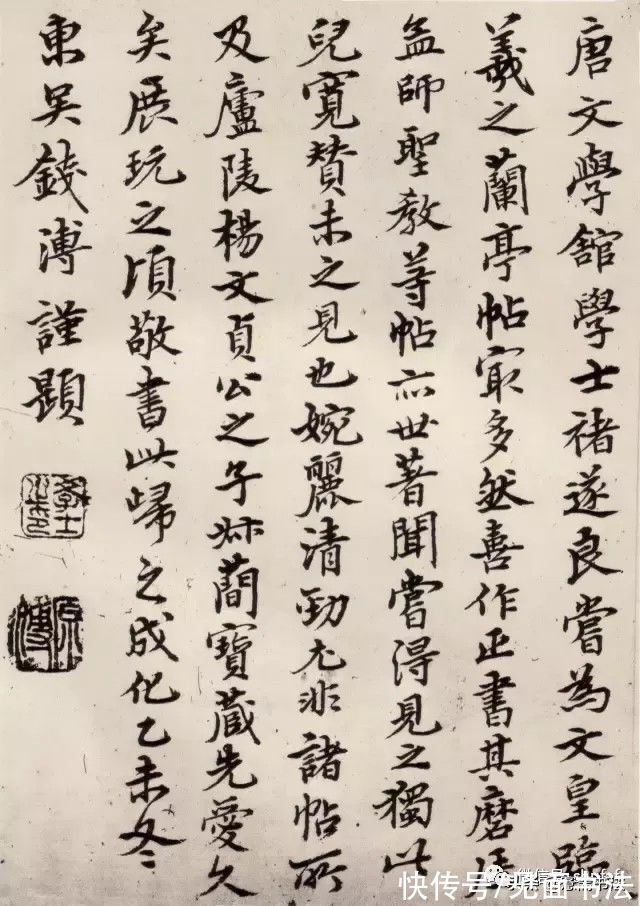 唐文學舘學士褚遂良嘗為文皇臨
羲之蘭亭帖㝡多然喜作正書其磨崖
孟師聖教等帖亦世著聞嘗得見之獨此
兒寬賛未之見也婉麗清勁尤非諸帖所
及廬陵楊文貞公之子叔蕳寶蔵先愛久
矣展玩之頃敬書此歸之成化乙未冬
東吴錢溥謹題
原溥
快传号/见面书法